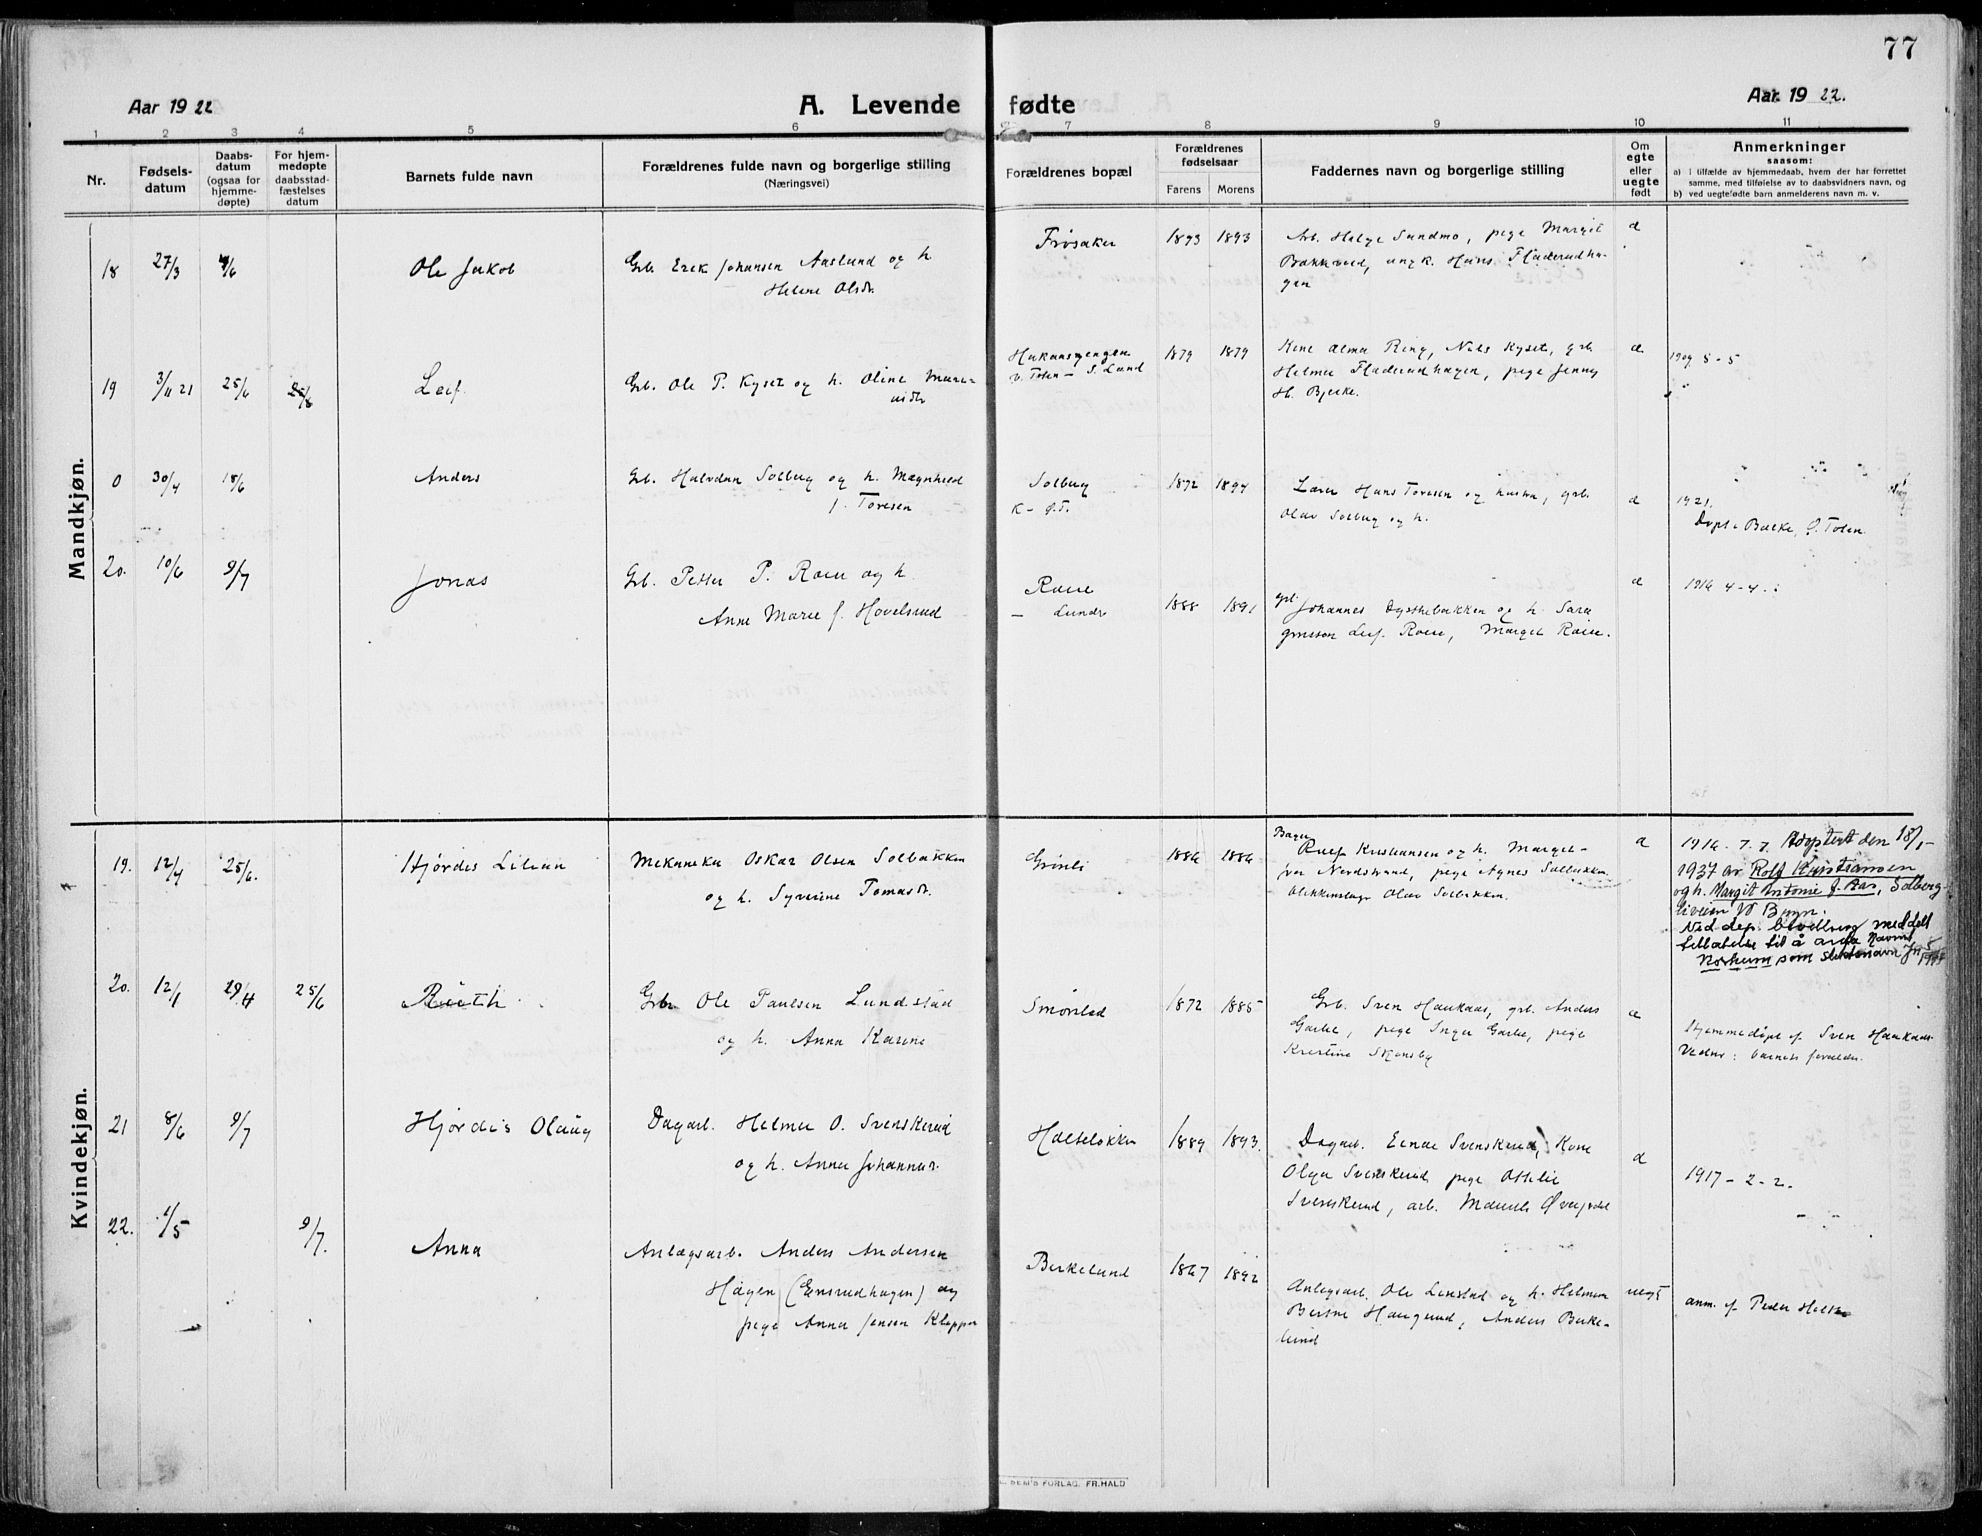 77
Aar 1922
A. Levende fødte
Aar 1922.
1 2 3 4 5 6 7 8 9 10 11
Nr.
Fødsels-
datum
Daabs-
datum
(ogsaa for
hjemme-
døpte)
For hjem-
medøpte
daabsstad-
fæstelses
datum
Barnets fulde navn
Forældrenes fulde navn og borgerlige stilling
(Næringsvei)
Forældrenes bopæl
Forældrenes
fødselsaar
Farens
Morens
Faddernes navn og borgerlige stilling
Om
egte
eller
uegte
født
Anmerkninger
saasom:
a) i tilfælde av hjemmedaab, hvem der har forrettet
samme, med tilføielse av to daabsvidners navn, og
b) ved uegtefødte barn anmelderens navn m. v.
Mandkjøn.
18 27/3 4/6 Ole Jakob
Grb. Erik Johansen Aaslund og h.
Helene Olsdr.
Frøsaker 1893 1893
Arb. Helge Sundmo, pege Margit
Bakkveld, ungk. Hans Fladerudha-
gen
19 3/11 21 25/6 25/6 Leif
Grb. Ole P. Kyset og h. Oline
Hakonsgengen
V. Toten - S. Land
1879 1879
Kone Alma Ring, Nils Kyset, grb.
Helmer Fladerudhagen, pege Jenny
H. Bjerke.
1909 5-5
0 30/4 18/6 Anders
Grb. Halvdan Solberg og h. Magnhild
f. Toresen
Solberg
K- Ø.T.
1892 1894
Lærer Hans Toresen og hustru, grb.
Olav Solberg og h.
1921.
Døpt i Balke, Ø. Toten
20. 10/6 9/7 Jonas
Grb. Petter P. Roise og h.
Anne Marie f. Hovelsrud
Roise
- Lunde
1888 1891
grb. Johannes Dysthebakken og h. Sara
Leif Roise, Margit Roise.
1916 4-4
Kvindekjøn.
19. 12/4 25/6. Hjørdis Lilian
Mekaniker Oskar Olsen Solbakken
og h. Syverine Tomasdr.
Grønli 1886 1886
Bager
Rolf Kristiansen og h. Margit
Nordstrand, pege Agnes Solbakken
Blikkenslager Olav Solbakken.
1916. 7.7. Adoptert den 18/1-
1937 av Rolf Kristiansen
og h. Margit Antonie f. Aas, Solberg-
liveien Bryn.
Ved dep. bevilling meddelt
tillatelse til å anta navnet
som slektsnavn
20. 12/1 29/4 25/6 Ruth
Grb. Ole Paulsen Lundstad
og h. Anna Karine
Smørlid 1872 1885
Grb. Sven Haukaas, grb. Anders
Garbe, pege Inger Garbe, pege
Kristine Skonsby
Hjemmedøpt af Sven Haukaas.
Vidner: barnets forældre.
21 8/6 9/7 Hjørdis Olaug
Dagarb. Helmer O. Svenskerud
og h. Anna Johannsdr.
Holteløkken 1889 1893.
Dagarb. Einar Svenskerud, Kone
Olga Svenskerud pege Ottilie
Svenskerud, arb.
1917 - 2-2.
22. 1/5 9/7. Anna
Anlægsarb. Anders Andersen
Hagen (Ensrudhagen) og
pege Anna Jensen Kloppen
Birkelund 1867 1892
Anlegsarb. Ole Lonstad og h. Helmine
Berthe Haugerud, Anders Birke-
lund
uegte
anm. af Peder Holthe
SEM'S FORLAG. FR.HALD